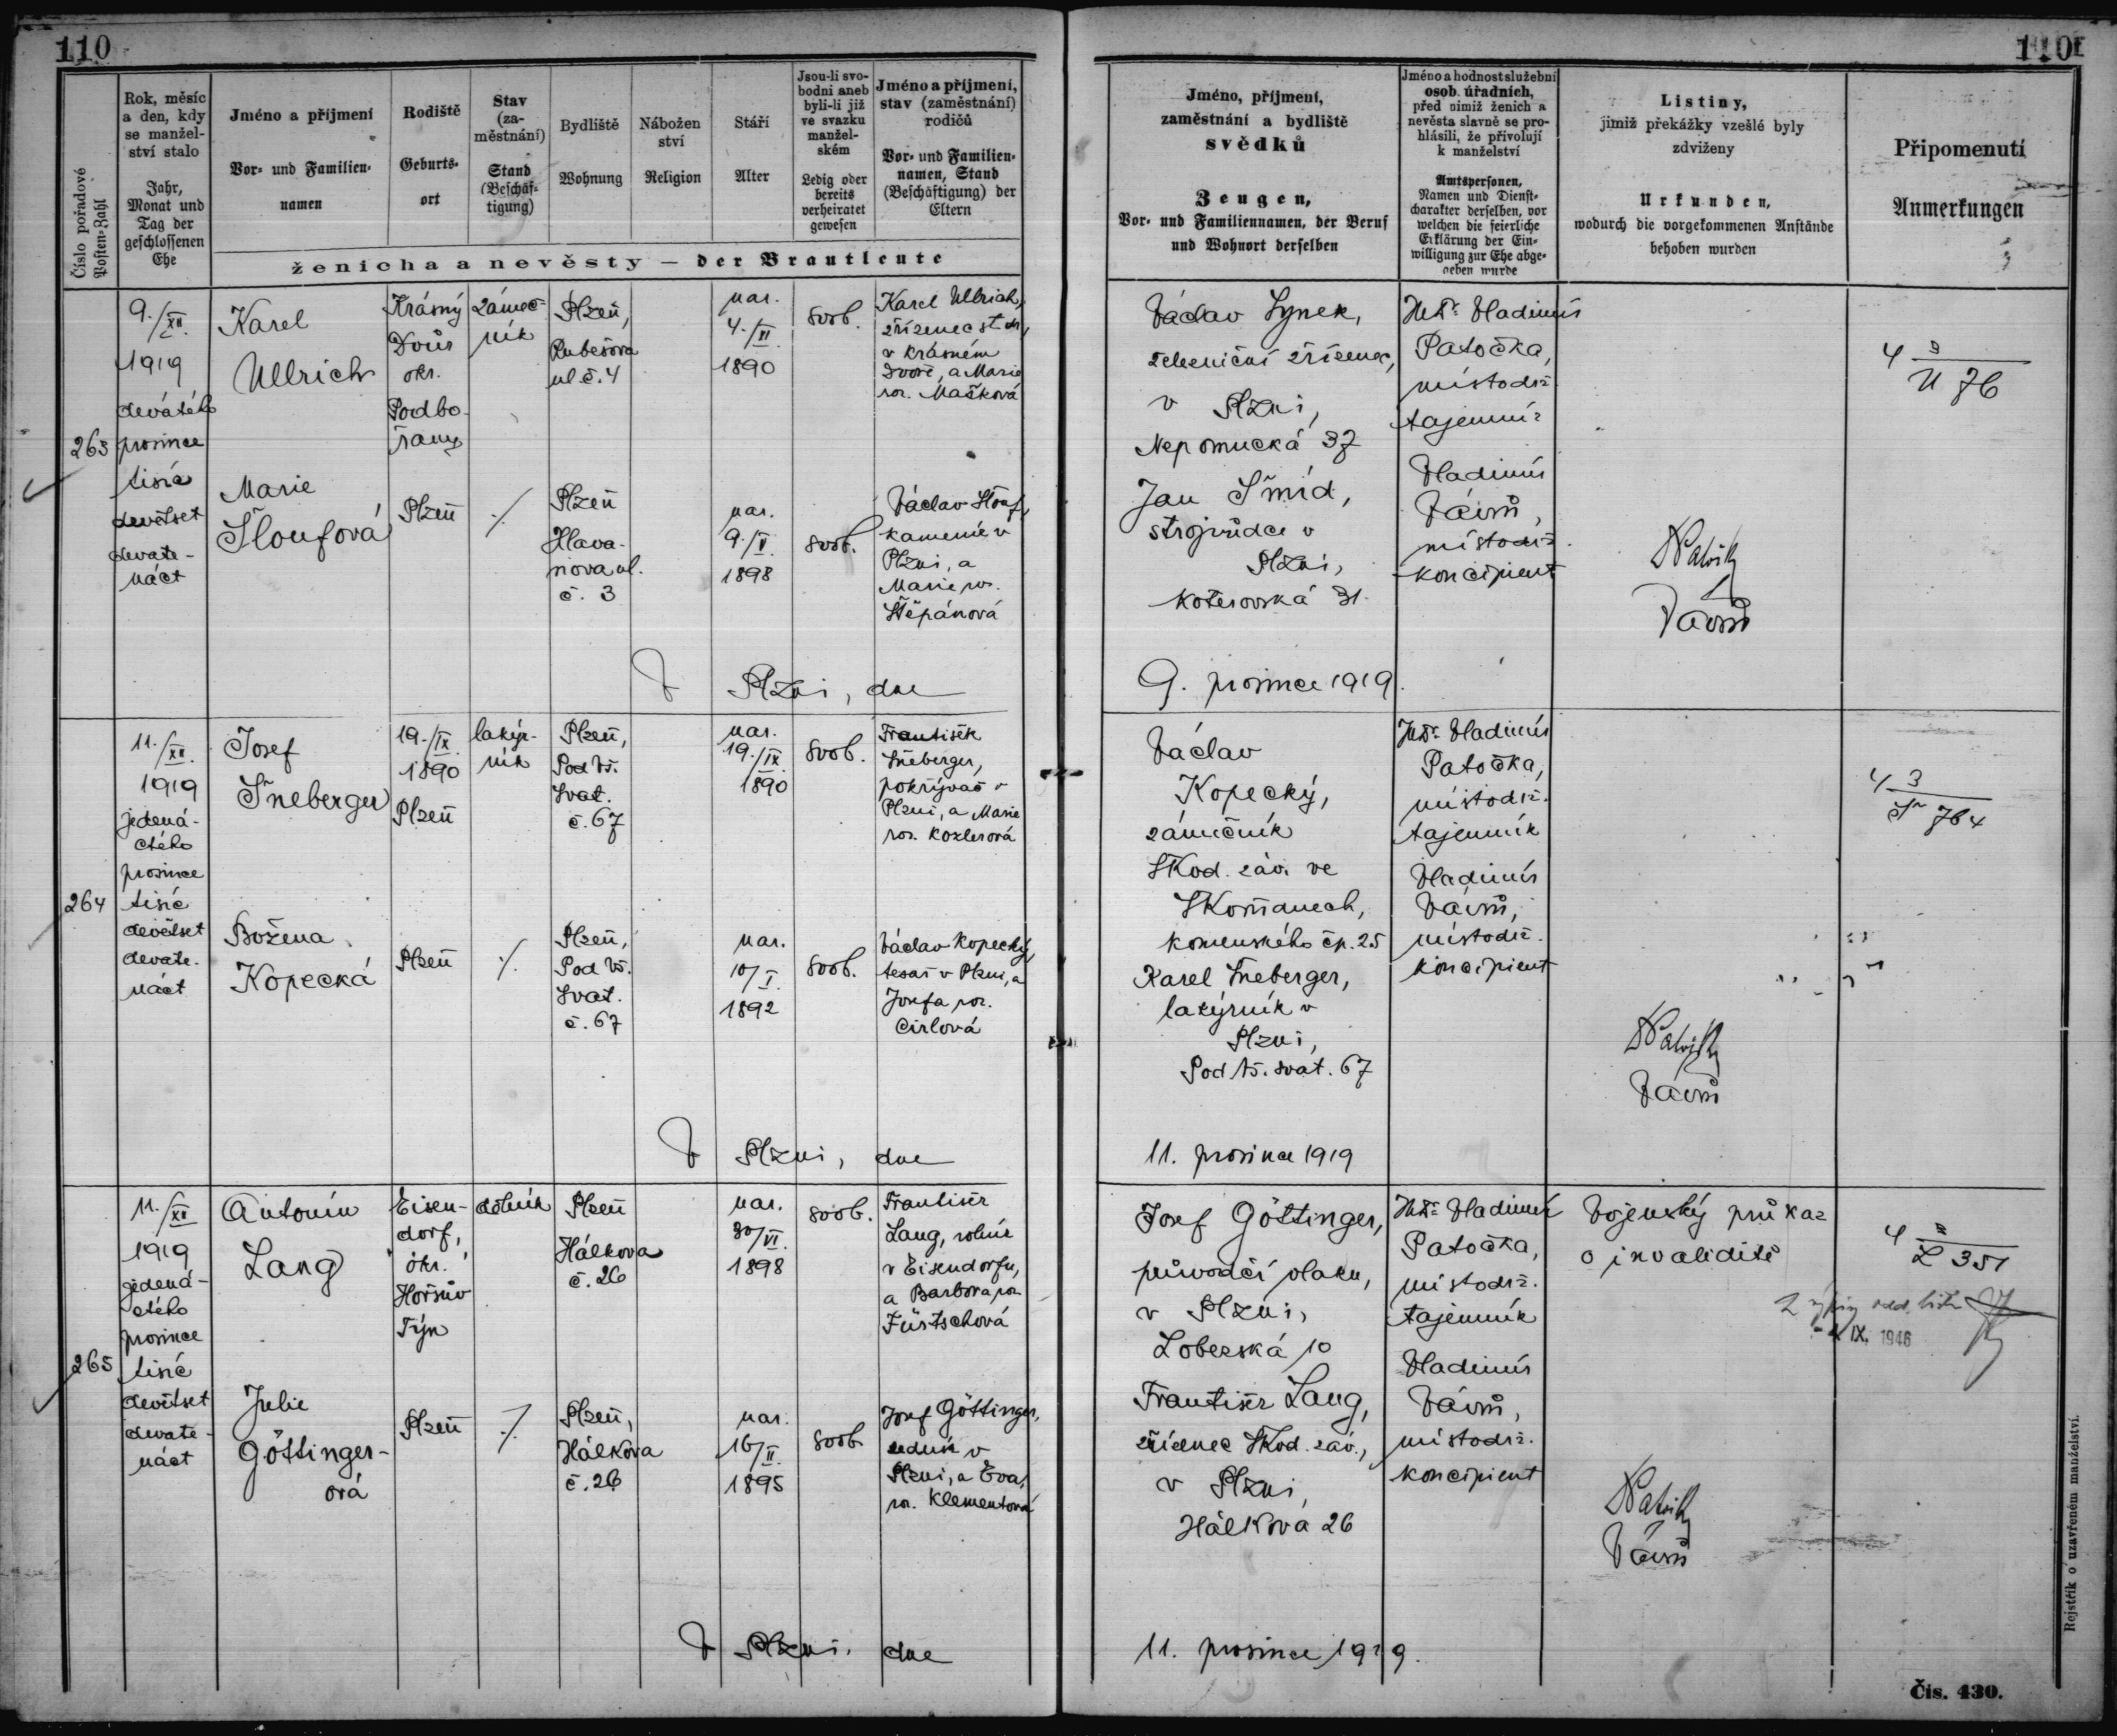 110
Číslo pořadové
Posten-Zahl
Rok, měsíc
a den, kdy
se manžel-
ství stalo
Jahr,
Monat und
Tag der
geschlossenen
Ehe
Jméno a příjmení
Vor- und Familien-
namen
Rodiště
Geburts-
ort
Stav
(za-
městnání)
Stand
(Beschäf-
tigung)
Bydliště
Wohnung
Nábožen
ství
Religion
Stáří
Alter
Jsou-li svo-
bodni aneb
byli-li již
ve svazku
manžel-
ském
Ledig oder
bereits
verheiratet
gewesen
Jméno a příjmení,
stav (zaměstnání)
rodičů
Vor- und Familien-
namen, Stand
(Beschäftigung) der
Eltern
ženicha a nevěsty — der Brautleute
263
9./XII.
1919
devátého
prosince
tisíc
devětset
devate-
náct
Karel
Ullrich
Krásný
Dvůr
okr.
Podbo-
řany
zámeč-
ník
Plzeň,
Rubešova
ul. č. 4
nar.
4./XI
1890
svob.
Karel Ullrich,
zřízenec st. dr.,
v Krásném
Dvoře, a Marie
roz. Mašková
Marie
Šloufová
Plzeň
·/.
Plzeň
Hlava-
nova ul.
č. 3
nar.
9./V.
1898
svob.
Václav Šlouf,
kameník v
Plzni, a
Marie roz.
Štěpánová
V Plzni, dne
264
11./XII.
1919
jedená-
ctého
prosince
tisíc
devětset
devate-
náct
Josef
Šneberger
19./IX.
1890
Plzeň
lakýr-
ník
Plzeň,
Pod Vš.
Svat.
č. 67
nar.
19./IX.
1890
svob.
František
Šneberger,
pokrývač v
Plzni, a Marie
roz. Kozlerová
Božena
Kopecká
Plzeň
·/.
Plzeň,
Pod Vš.
Svat.
č. 67
nar.
10/I.
1892
svob.
Václav Kopecký,
tesař v Plzni, a
Josefa roz.
Cirlová
V Plzni, dne
265
11./XII
1919
jedená-
ctého
prosince
tisíc
devětset
devate-
náct
Antonín
Lang
Eisen-
dorf,
okr.
Horšův
Týn
dělník
Plzeň
Hálkova
č. 26
nar.
30/VI.
1898
svob.
František
Lang, rolník
v Eisendorfu,
a Barbora roz.
Fürtschová
Julie
Göttinger-
ová
Plzeň
·/.
Plzeň,
Hálkova
č. 26
nar.
16/II.
1895
svob.
Josef Göttinger,
zedník v
Plzni, a Eva,
roz. Klementová
V Plzni, dne
110
Jméno, příjmení,
zaměstnání a bydliště
svědků
Zeugen,
Vor- und Familiennamen, der Beruf
und Wohnort derselben
Jméno a hodnost služební
osob úřadních,
před nimiž ženich a
nevěsta slavně se pro-
hlásili, že přivolují
k manželství
Amtspersonen,
Namen und Dienst-
charakter derselben, vor
welchen die feierliche
Erklärung der Ein-
willigung zur Ehe abge-
geben wurde
Listiny,
jimiž překážky vzešlé byly
zdviženy
Urkunden,
wodurch die vorgekommenen Anstände
behoben wurden
Připomenutí
Anmerkungen
Václav Synek,
železniční zřízenec,
v Plzni,
Nepomucká 37
Jan Šmíd,
strojvůdce v
Plzni,
Koterovská 31.
JUDr. Vladimír
Patočka,
místodrž.
tajemník
Vladimír
Vávrů,
místodrž.
koncipient
Vávrů
4 3
U 76
9. prosince 1919.
Václav
Kopecký,
zámečník
Škod. záv. ve
Škvrňanech,
Komenského čp. 25
Karel Šneberger,
lakýrník v
Plzni,
Pod Vš. svat. 67
JUDr. Vladimír
Patočka,
místodrž.
tajemník
Vladimír
Vávrů,
místodrž.
koncipient
Vávrů
4 3
Š 764
11. prosince 1919
Josef Göttinger,
průvodčí vlaku,
v Plzni,
Lobezská 10
František Lang,
zřízenec Škod. záv.,
v Plzni,
Hálkova 26
JUDr. Vladimír
Patočka,
místodrž.
tajemník
Vladimír
Vávrů,
místodrž.
koncipient
Vojenský průkaz
o invaliditě
Vávrů
4 3
L 351
IX. 1946
11. prosince 1919.
Rejstřík o uzavřeném manželství.
Čís. 430.